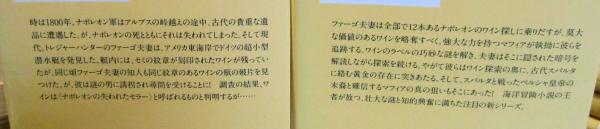 時は1800年、ナポレオン軍はアルプスの峠越えの途中、古代の貴重な遺
品に遭遇した。が、ナポレオンの死とともにそれは失われてしまった。そして現
代。トレジャーハンターのファーゴ夫妻は、アメリカ東海岸でドイツの超小型
潜水艇を発見した。艇内には、セミの紋章が刻印されたワインが残ってい
たが、同じ頃ファーゴ夫妻の知人も同じ紋章のあるワインの瓶の破片を見
つけたが、彼は謎の男に誘拐され尋問を受けることに！ 調査の結果、ワ
インは〈ナポレオンの失われたセラー〉と呼ばれるものと判明するが……。
ファーゴ夫妻は全部で12本あるナポレオンのワイン探しに乗りだすが、莫大
な価値のあるワインを略奪すべく、強大な力を持つマフィアが執拗に彼らを
追跡する。ワインのラベルの巧妙な謎を解き、夫妻はそこに隠された暗号を
解読しながら探索を続ける。やがて彼らはワイン探索の奥に、古代スパルタ
に絡む黄金の存在に突きあたる。そして、スパルタと戦ったペルシャ皇帝の
末裔と確信するマフィアの真の狙いもそこにあった！ 海洋冒険小説の王
者が放つ、壮大な謎と知的興奮に満ちた注目の新シリーズ。